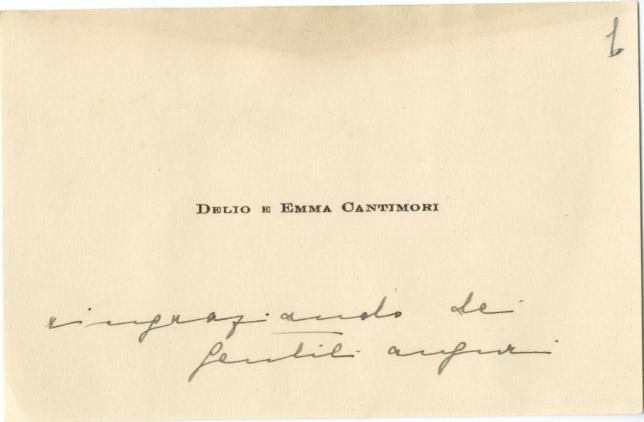 6
DELIO E EMMA CANTIMORI
ringraziando dei
gentili auguri